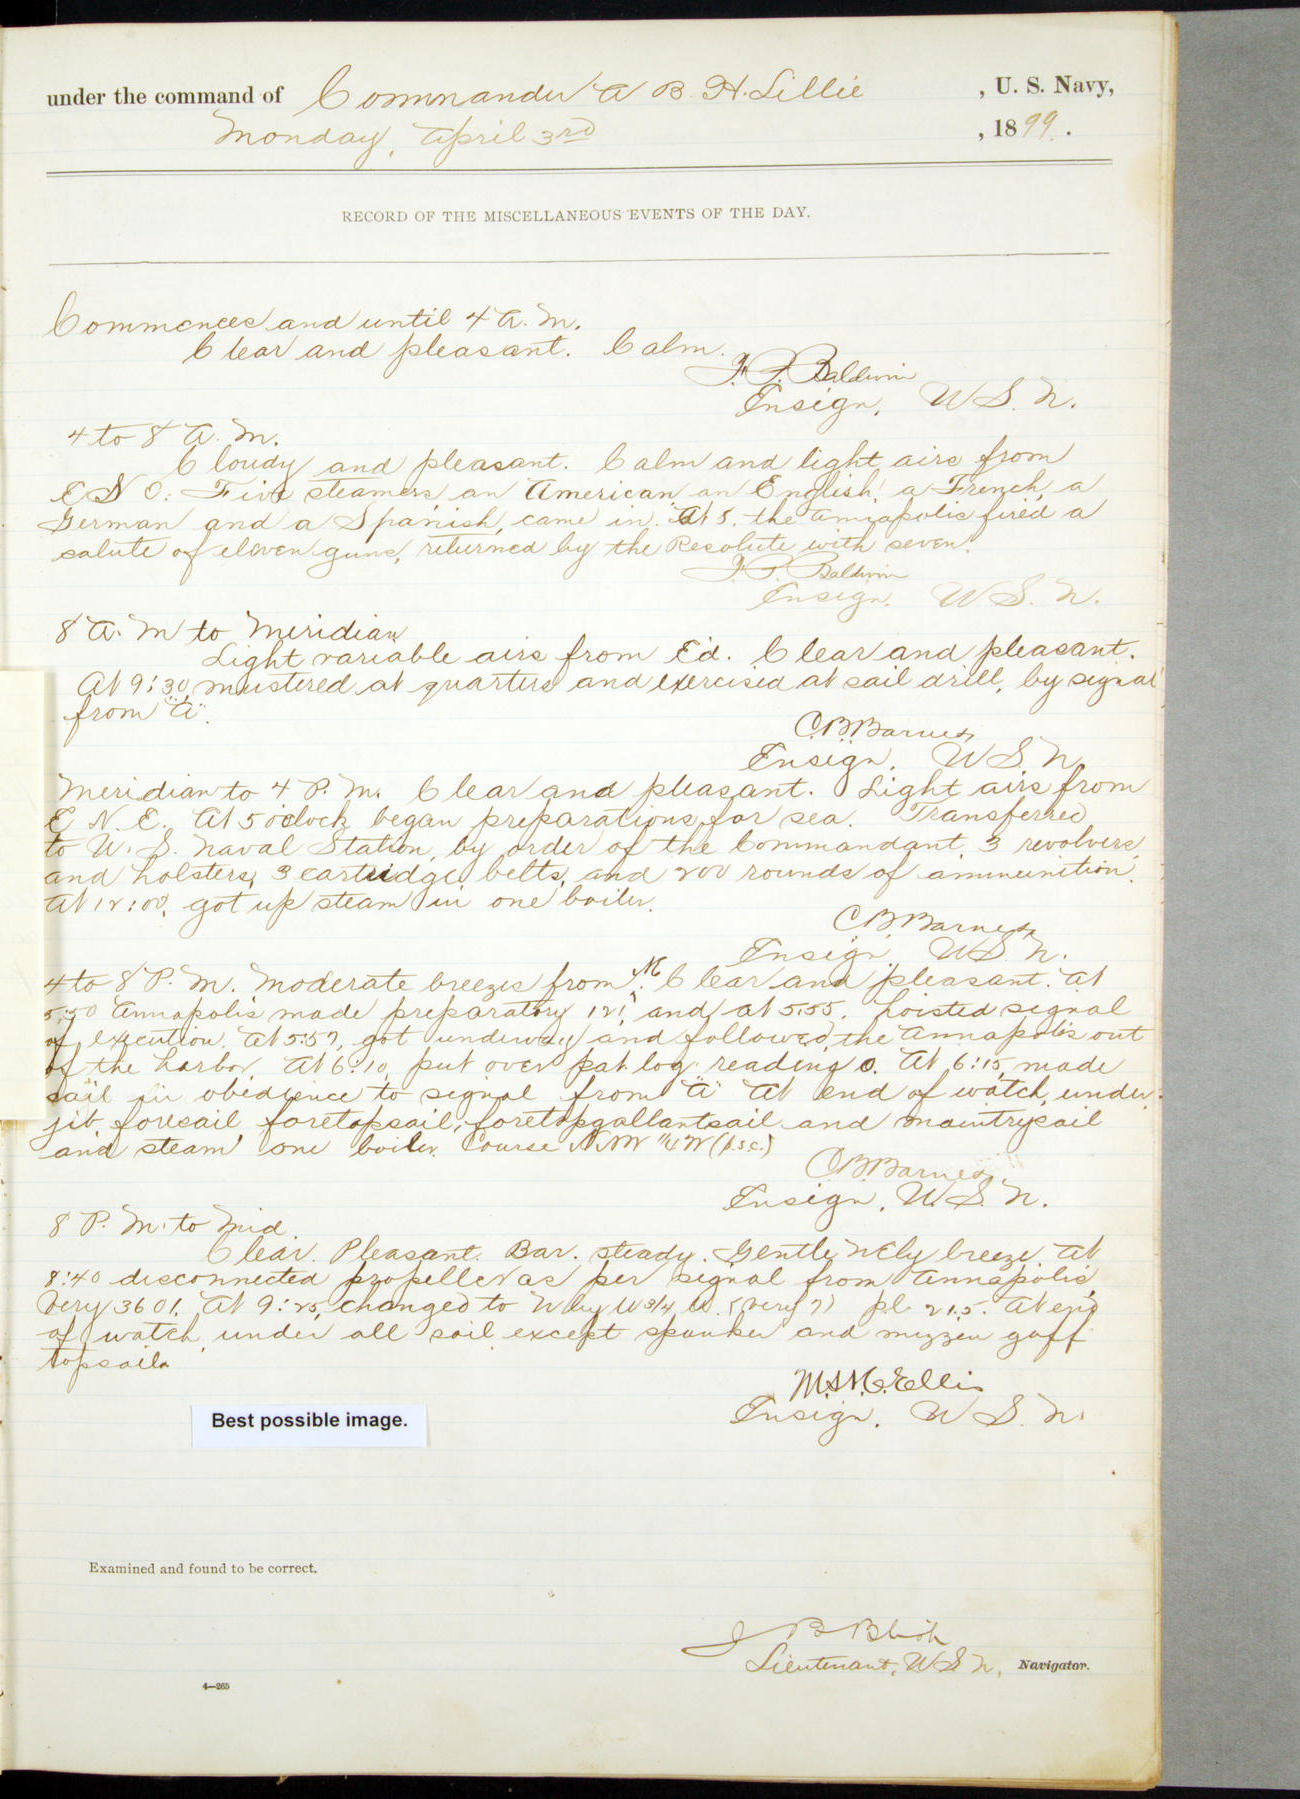 under the command of Commander A B. H. Lillie, U. S. Navy,
Monday, April 3rd, 1899.
RECORD OF THE MISCELLANEOUS EVENTS OF THE DAY.
Commences and until 4 A. M.
Clear and pleasant. Calm.
F. P. Baldwin
Ensign, U S. N.
4 to 8 A. M.
Cloudy and pleasant. Calm and light airs from
Five steamers, an American, an English, a French, a
German and a Spanish, came in. At 8. the Annapolis fired a
salute of eleven guns, returned by the Resolute with seven.
F. P. Baldwin
Ensign. U S. N.
8 A. M to Meridian
Light variable airs from E'd. Clear and pleasant.
At 9:30, mustered at quarters and exercised at sail drill, by signal
from "A".
C. B. Barnes,
Ensign, U S. N.
Meridian to 4 P. M. Clear and pleasant. Light airs from
E N. E. At 5 o'clock began preparations for sea. Transferred
to U. S. Naval Station, by order of the Commandant, 3 revolvers
and holsters, 3 cartridge belts, and 200 rounds of ammunition.
At 12:00, got up steam in one boiler.
C B Barnes,
Ensign U S. N.
4 to 8 P. M. Moderate breezes from N. Clear and pleasant. At
5:50 Annapolis made preparatory 121, and at 5:55, hoisted signal
of execution. At 5:57, got underway and followed the Annapolis out
of the harbor. At 6:10, put over pat. log reading 0. At 6:15, made
sail in obedience to signal from "A" At end of watch, under
jib, foresail foretopsail, foretopgallantsail and maintrysail
and steam one boiler. Course NNW 1/4 W (p.s.c.)
C. B. Barnes,
Ensign, U. S. N.
8 P. M. to Mid.
Clear. Pleasant. Bar. steady. Gentle NEly breeze. At
8:40 disconnected propeller as per signal from Annapolis,
Very 3601. At 9:25, changed to N by W 3/4 W. (Very 7) pl. 21.5. At end
of watch, under all sail except spanker and mizzen gaff
topsail.
M. St. C. Ellis
Ensign, U S. N.
Best possible image.
Examined and found to be correct.
J B Blish
Lieutenant, U S N, Navigator.
4—265